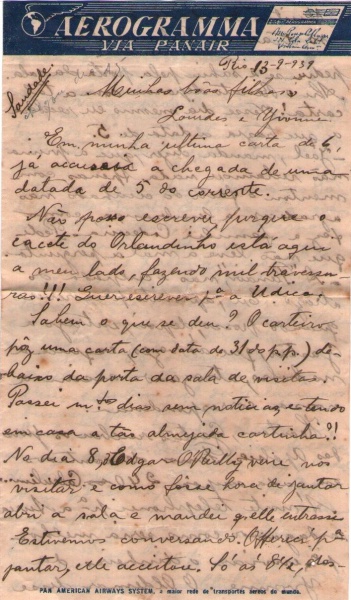 AEROGRAMMA
VIA PANAIR
Rio 13-9-939
Saudades
Minhas bôas filhas
Lourdes e Yvonne
Em minha ultima carta de 6,
já accusei a chegada de uma
datada de 5 do corrente.
Não posso escrever, porque o
cacete do Orlandinho está aqui
a meu lado, fazendo mil travessu-
ras!!! Quer escrever pª a Udica.
Sabem o que se deu? O carteiro
pôz uma carta (com data de 31 do p.p.) de-
baixo da porta da sala de visitas.
Passei mtos dias sem noticias, e tendo
em casa a tão almejada cartinha!!
No dia 8, Edgar O'Reilly veiu nos
visitar e como fosse hora de jantar
abri a sala e mandei q. elle entrasse
Estivemos conversando. Offereci pª
jantar, elle acceitou. Só ás 8½
PAN AMERICAN AIRWAYS SYSTEM, a maior rede de transportes aereos do mundo.